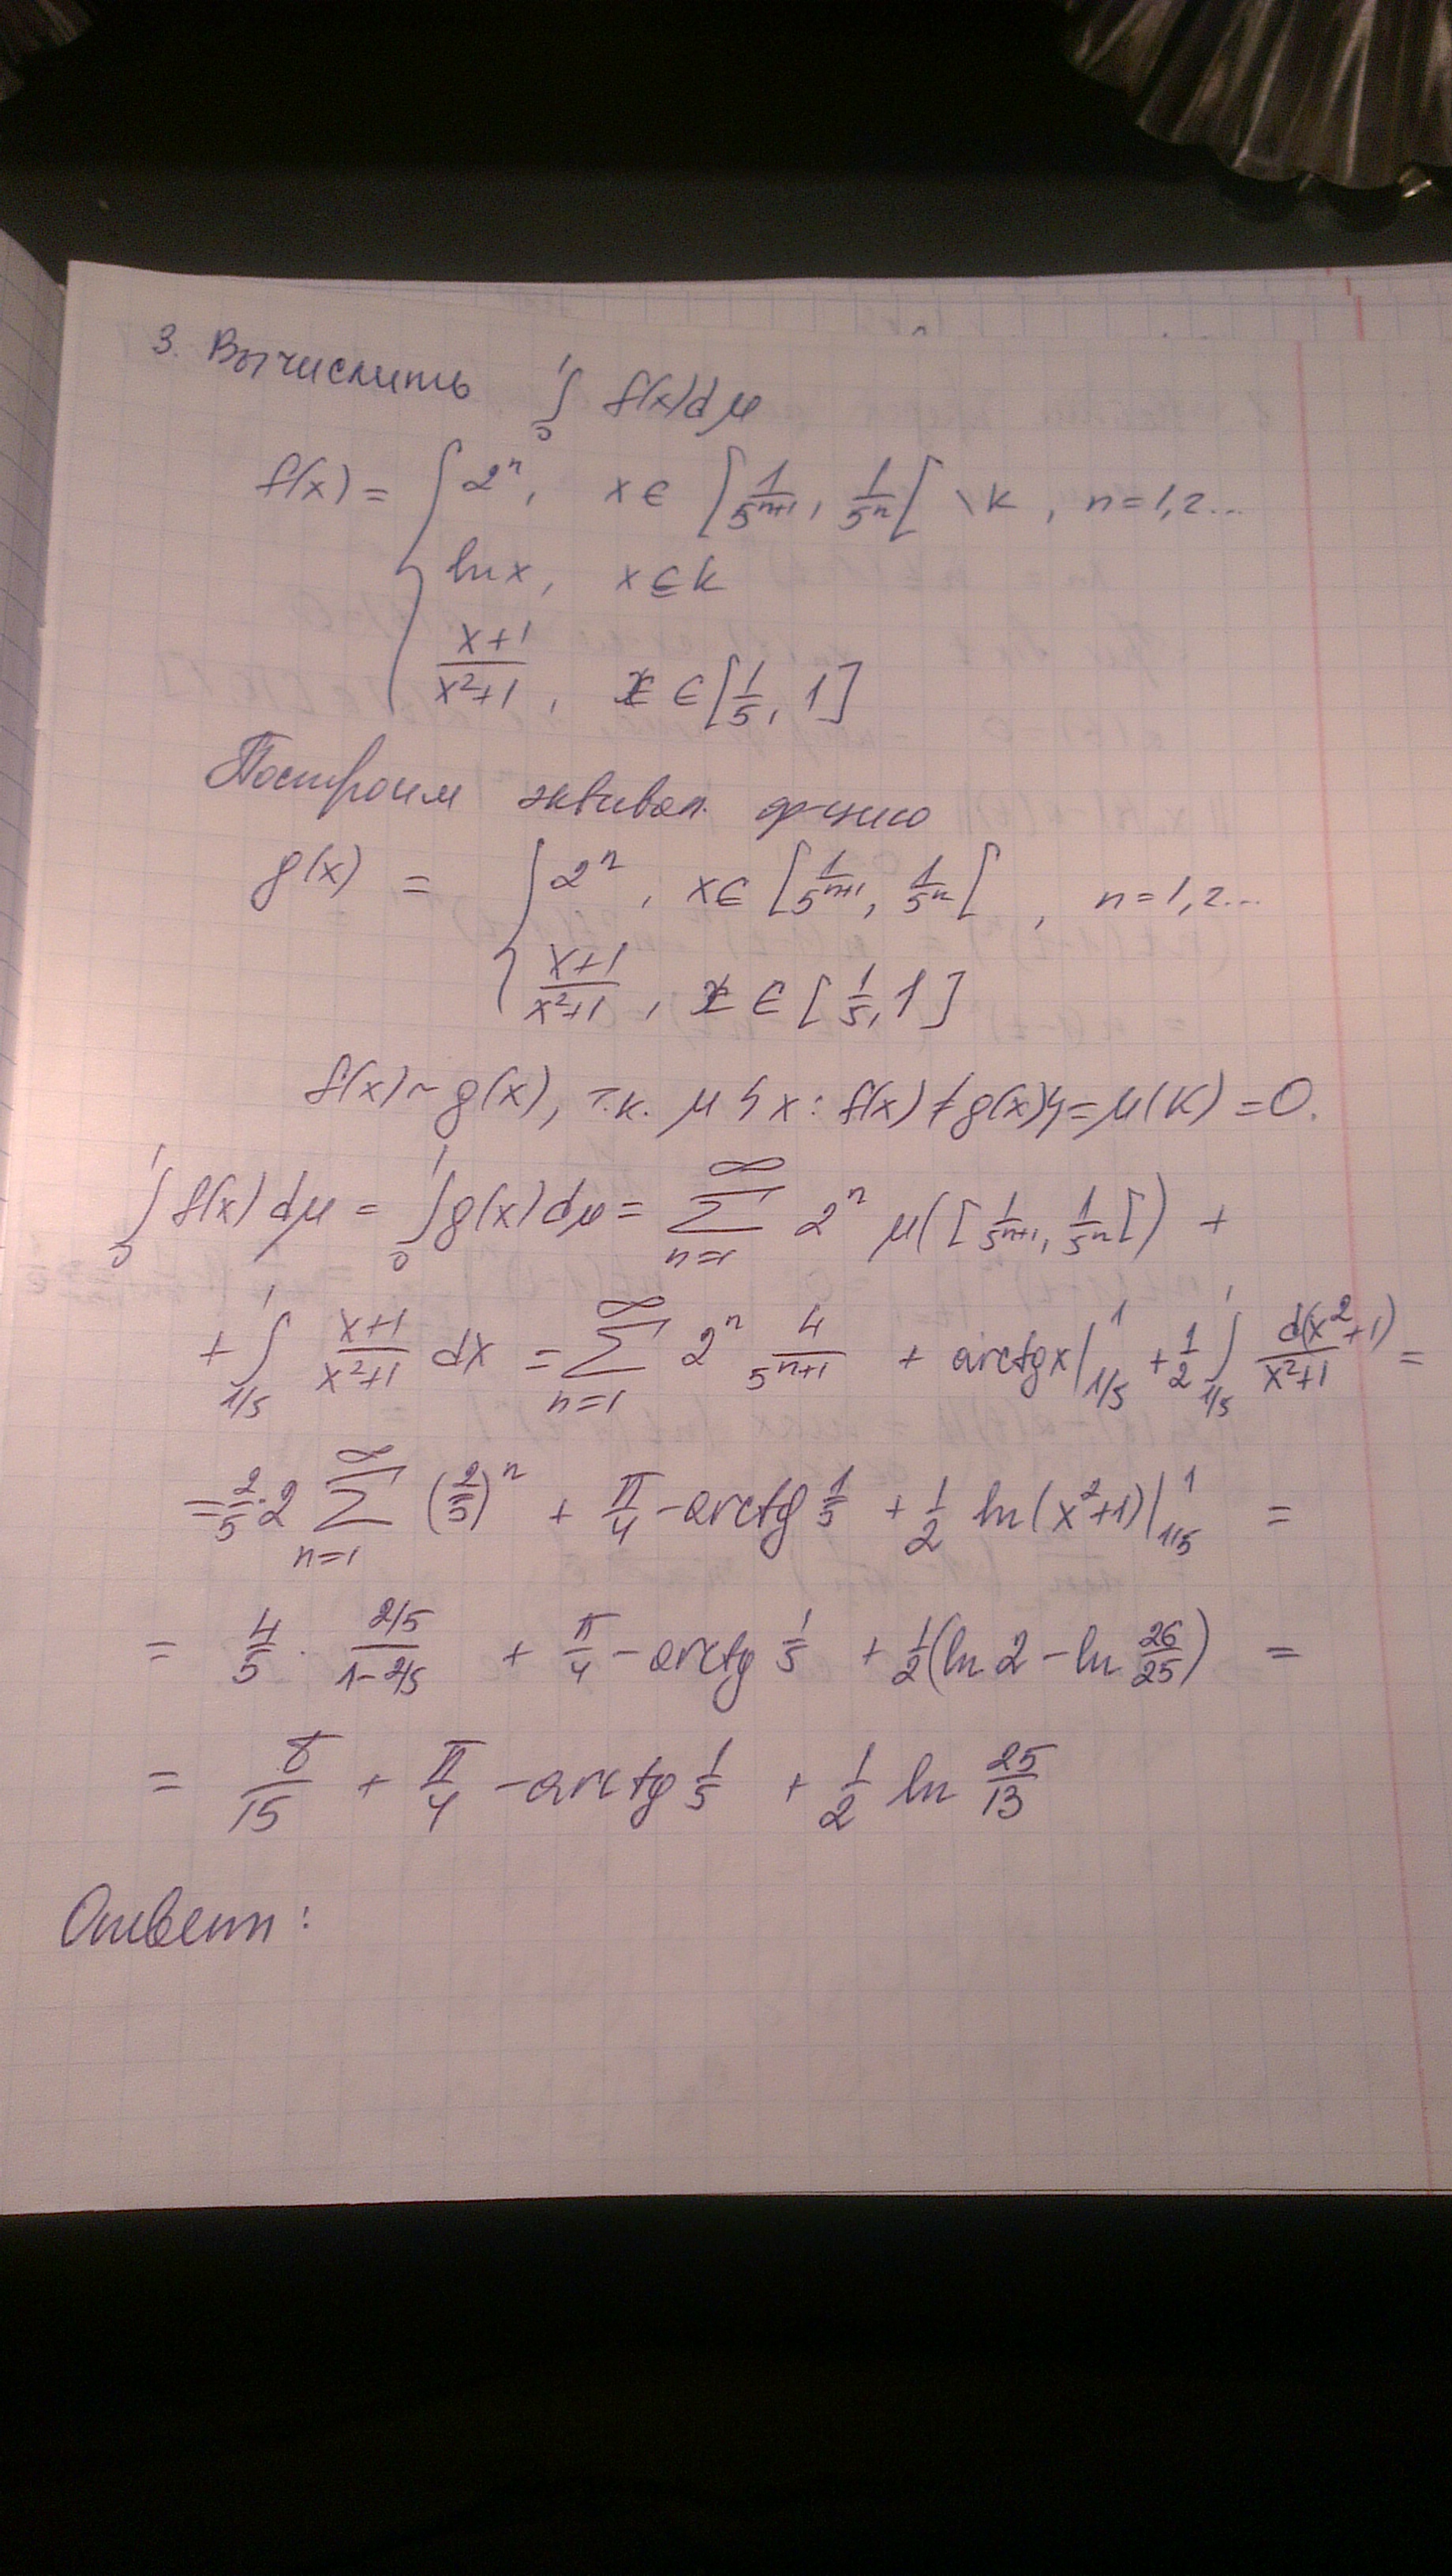 3. Вычислить ∫₀¹ f(x)dμ
f(x) = { 2ⁿ, x ∈ [1/5ⁿ⁺¹, 1/5ⁿ[ \ K, n=1,2...
ln x, x ∈ K
(x+1)/(x²+1), x ∈ [1/5, 1]
Построим эквивал. ф-цию
g(x) = { 2ⁿ, x ∈ [1/5ⁿ⁺¹, 1/5ⁿ[, n=1,2...
(x+1)/(x²+1), x ∈ [1/5, 1]
f(x) ~ g(x), т.к. μ{x: f(x) ≠ g(x)} = μ(K) = 0.
∫₀¹ f(x) dμ = ∫₀¹ g(x) dμ = ∑ₙ₌₁^∞ 2ⁿ μ([1/5ⁿ⁺¹, 1/5ⁿ[) +
+ ∫_{1/5}^1 (x+1)/(x²+1) dx = ∑ₙ₌₁^∞ 2ⁿ 4/5ⁿ⁺¹ + arctg x|_{1/5}^1 + 1/2 ∫_{1/5}^1 d(x²+1)/(x²+1) =
= 2/5·2 ∑ₙ₌₁^∞ (2/5)ⁿ + π/4 - arctg 1/5 + 1/2 ln(x²+1)|_{1/5}^1 =
= 4/5 · (2/5)/(1-2/5) + π/4 - arctg 1/5 + 1/2(ln 2 - ln 26/25) =
= 8/15 + π/4 - arctg 1/5 + 1/2 ln 25/13
Ответ: